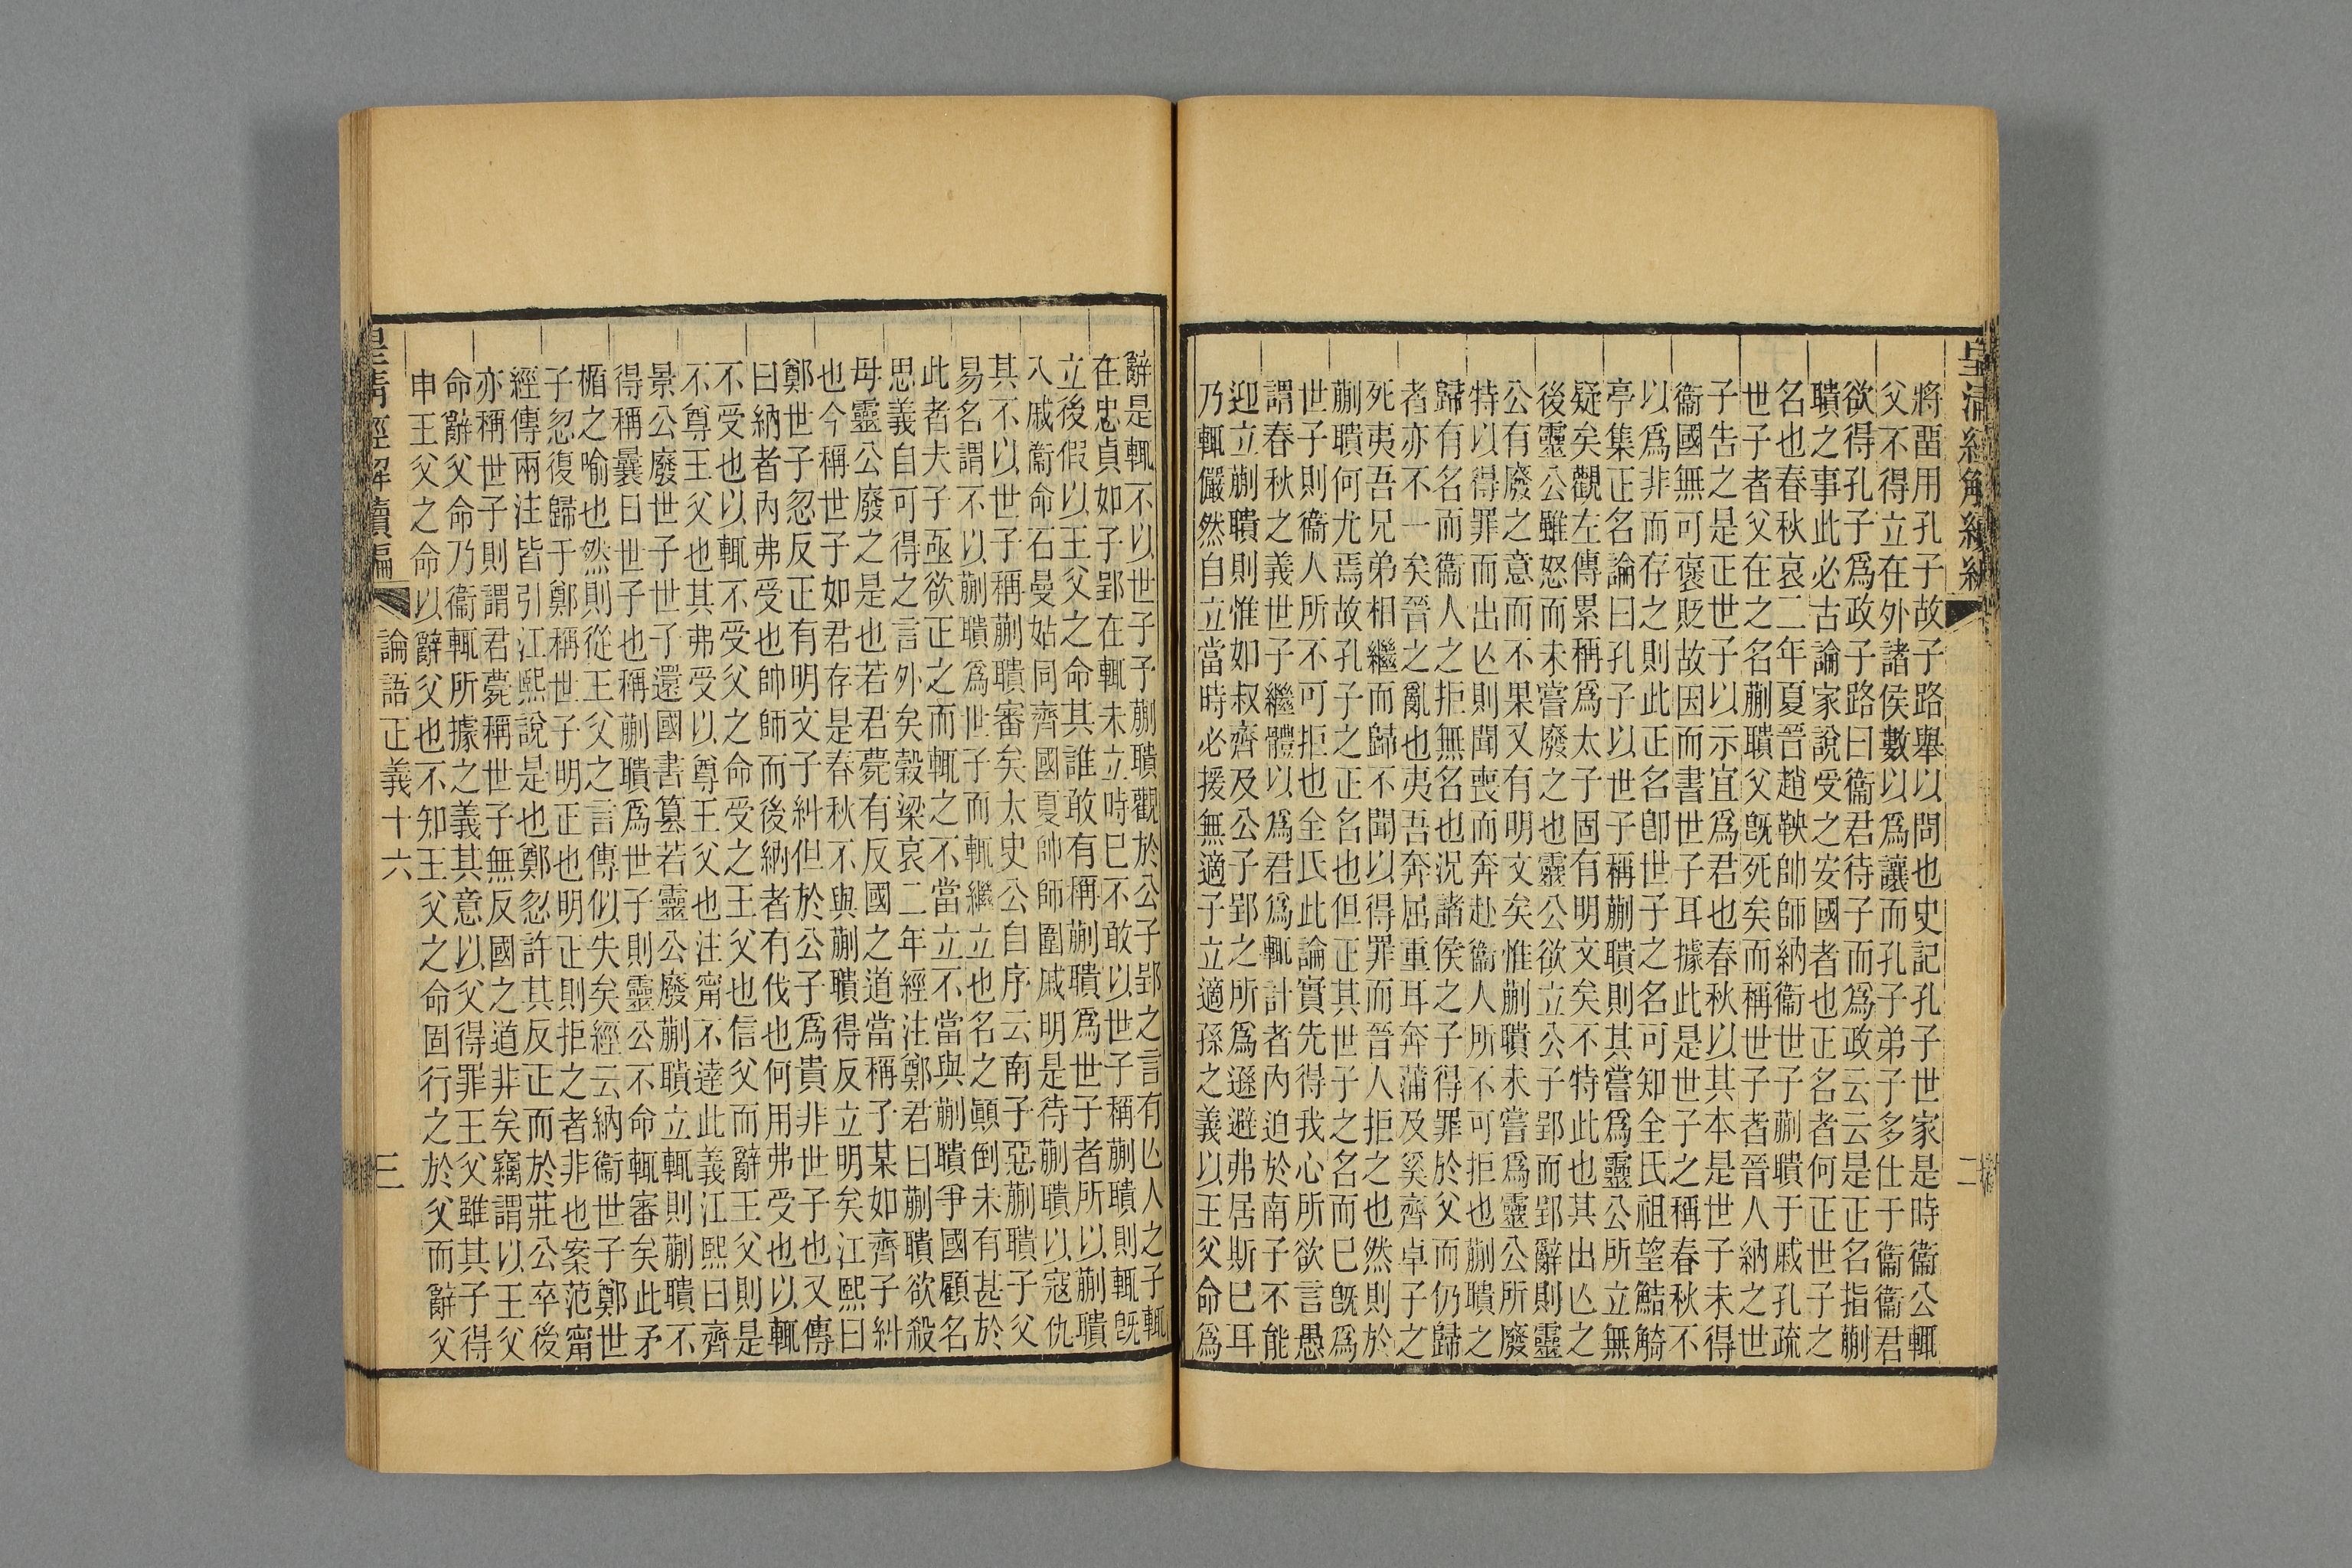 皇清經解續編 二
將畱用孔子故子路舉以問也史記孔子世家是時衞公輒
父不得立在外諸侯數以爲讓而孔子弟子多仕于衞衞君
欲得孔子爲政子路曰衞君待子而爲政云云是正名指蒯
聵之事此必古論家說受之安國者也正名者何正世子之
名也春秋哀二年夏晉趙鞅帥師納衞世子蒯聵于戚孔疏
世子者父在之名蒯聵父旣死矣而稱世子者晉人納之世
子告之是正世子以示宜爲君也春秋以其本是世子未得
衞國無可褒貶故因而書世子耳據此是世子之稱春秋不
以爲非而存之則此正名卽世子之名可知全氏祖望鮚觭
亭集正名論曰孔子以世子稱蒯聵則其嘗爲靈公所立無
疑矣觀左傳累稱爲太子固有明文矣不特此也其出亾之
後靈公雖怒而未嘗廢之也靈公欲立公子郢而郢辭則靈
公有廢之意而不果又有明文矣惟蒯聵未嘗爲靈公所廢
特以得罪而出亾則聞喪而奔赴衞人所不可拒也蒯聵之
歸有名而衞人之拒無名也況諸侯之子得罪於父而仍歸
者亦不一矣晉之亂也夷吾奔屈重耳奔蒲及奚齊卓子之
死夷吾兄弟相繼而歸不聞以得罪而晉人拒之也然則於
蒯聵何尤焉故孔子之正名也但正其世子之名而已旣爲
世子則衞人所不可拒也全氏此論實先得我心所欲言愚
謂春秋之義世子繼體以爲君爲輒計者內迫於南子不能
迎立蒯聵則惟如叔齊及公子郢之所爲遜避弗居斯已耳
乃輒儼然自立當時必援無適子立適孫之義以王父命爲
辭是輒不以世子予蒯聵觀於公子郢之言有亾人之子輒
在忠貞如子郢在輒未立時已不敢以世子稱蒯聵則輒旣
立後假以王父之命其誰敢有稱蒯聵爲世子者所以蒯聵
入戚衞命石曼姑同齊國夏帥師圍戚明是待蒯聵以寇仇
其不以世子稱蒯聵審矣太史公自序云南子惡蒯聵子父
易名謂不以蒯聵爲世子而輒繼立也名之顚倒未有甚於
此者夫子亟欲正之而輒之不當立不當與蒯聵爭國顧名
思義自可得之言外矣穀梁哀二年經注鄭君曰蒯聵欲殺
母靈公廢之是也若君薨有反國之道當稱子某如齊子糾
也今稱世子如君存是春秋不與蒯聵得反立明矣江熙曰
鄭世子忽反正有明文子糾但於公子爲貴非世子也又傳
曰納者內弗受也帥師而後納者有伐也何用弗受也以輒
不受也以輒不受父之命受之王父也信父而辭王父則是
不尊王父也其弗受以尊王父也注甯不達此義江熙曰齊
景公廢世子世子還國書篡若靈公廢蒯聵立輒則蒯聵不
得稱曩日世子也稱蒯聵爲世子則靈公不命輒審矣此矛
楯之喻也然則從王父之言傳似失矣經云納衞世子鄭世
子忽復歸于鄭稱世子明正也明正則拒之者非也案范甯
經傳兩注皆引江熙說是也鄭忽許其反正而於莊公卒後
亦稱世子則謂君薨稱世子無反國之道非矣竊謂以王父
命辭父命乃衞輒所據之義其意以父得罪王父雖其子得
申王父之命以辭父也不知王父之命固行之於父而辭父
皇清經解續編 論語正義十六 三